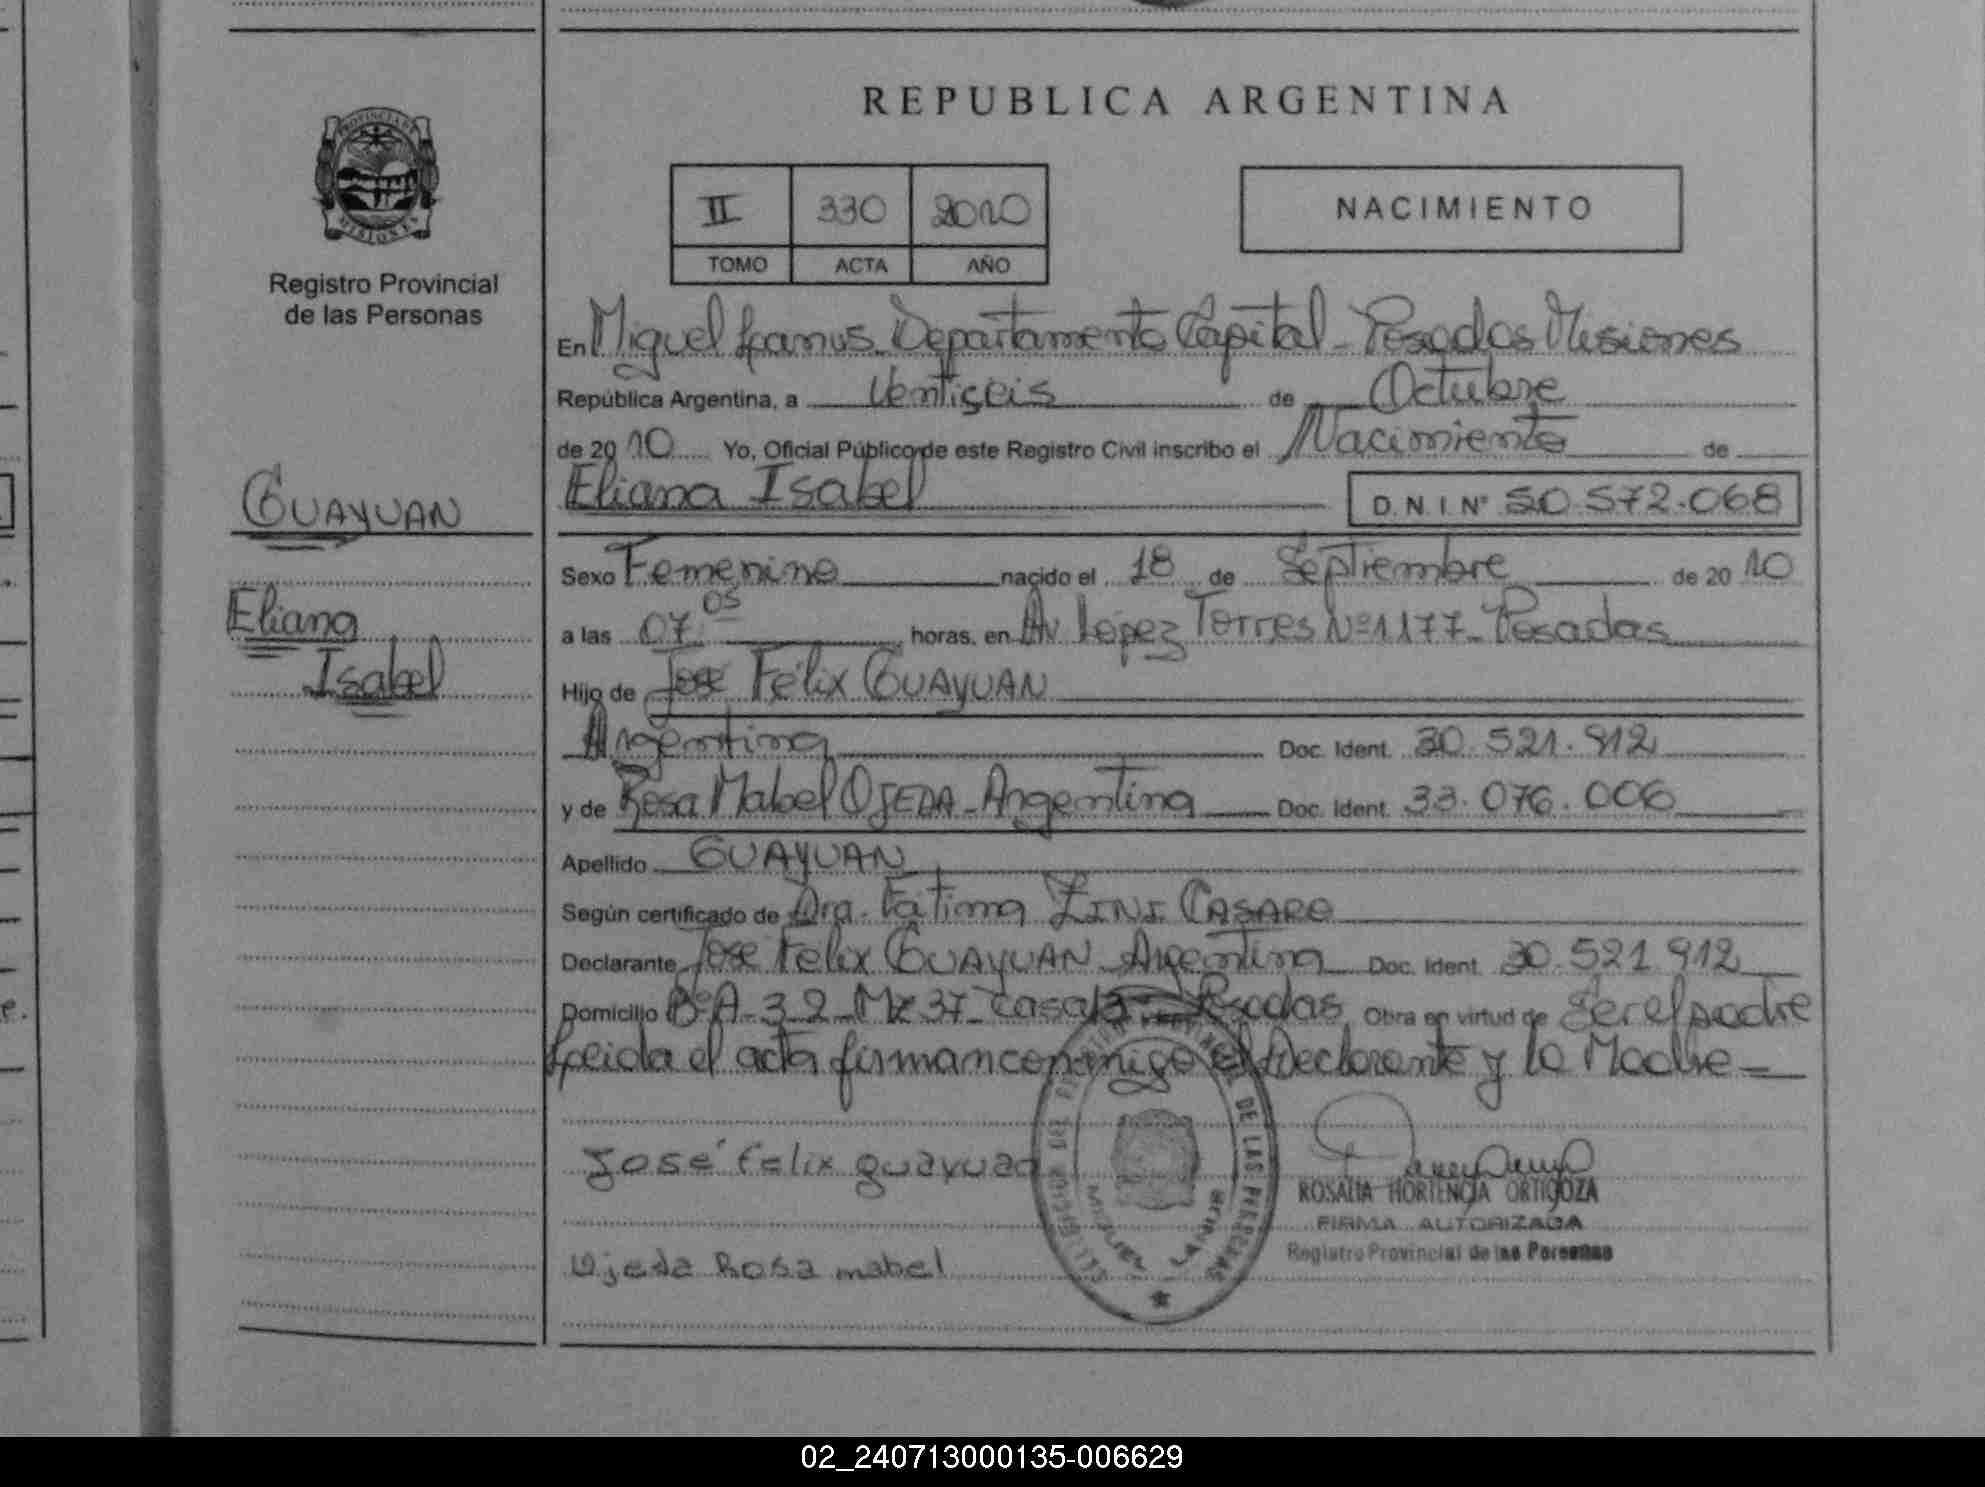 REPUBLICA ARGENTINA
PROVINCIA DE
MISIONES
Registro Provincial
de las Personas
II 330 2010
TOMO ACTA AÑO
NACIMIENTO
En Miguel Lanus. Departamento Capital - Posadas Misiones
República Argentina, a Ventiseis de Octubre
de 2010 Yo, Oficial Público de este Registro Civil inscribo el Nacimiento de
GUAYUAN
Eliana Isabel D.N.I. Nº 50.572.068
Sexo Femenino nacido el 18 de Septiembre de 2010
Eliana
a las 07.05 horas, en Av. López Torres Nº 1177- Posadas
Isabel
Hijo de José Félix GUAYUAN
Argentina Doc. Ident. 30.521.912
y de Rosa Mabel OJEDA - Argentina Doc. Ident. 33.076.006
Apellido GUAYUAN
Según certificado de Dra. Fátima ZINI CASARO
Declarante José Félix GUAYUAN Argentina Doc. Ident. 30.521.912
Domicilio Bº A-3 2 Mz 37 Casa Posadas Obra en virtud de Ser el padre
Leida el acta firman conmigo el Declarante y la Madre
José Felix guayuan
ROSALIA HORTENCIA ORTIGOZA
FIRMA AUTORIZADA
Registro Provincial de las Personas
Ojeda Rosa mabel
DE LAS PERSONAS
MIGUEL LANUS
02_240713000135-006629